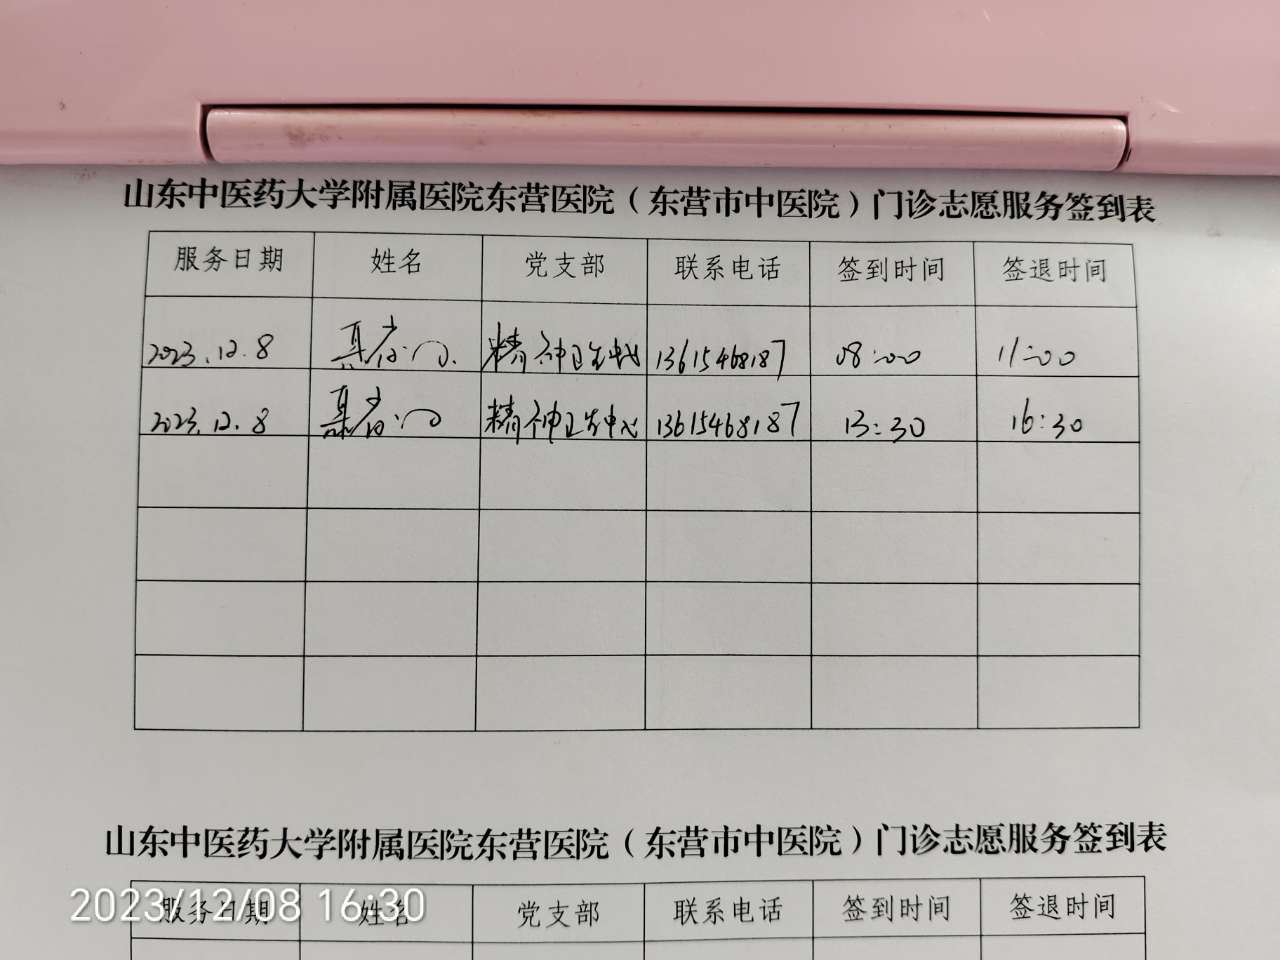 山东中医药大学附属医院东营医院（东营市中医院）门诊志愿服务签到表
服务日期 姓名 党支部 联系电话 签到时间 签退时间
2023.12.8 精神卫生中心 13615468187 08:00 11:00
2023.12.8 精神卫生中心 13615468187 13:30 16:30
山东中医药大学附属医院东营医院（东营市中医院）门诊志愿服务签到表
服务日期 姓名 党支部 联系电话 签到时间 签退时间
2023/12/08 16:30